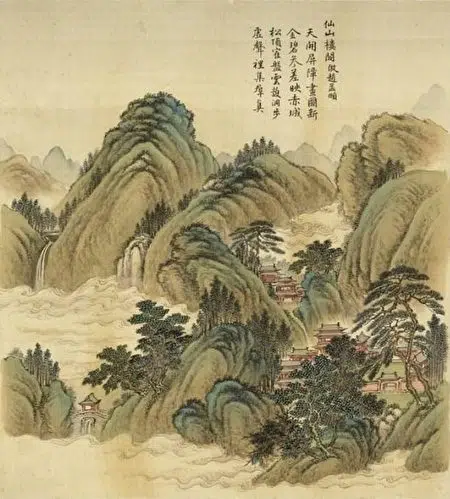 仙山樓閣倣趙孟頫
天開屏障畫圖新
金碧參差映赤城
松頂寉盤雲護洞步
虛聲裡集羣真